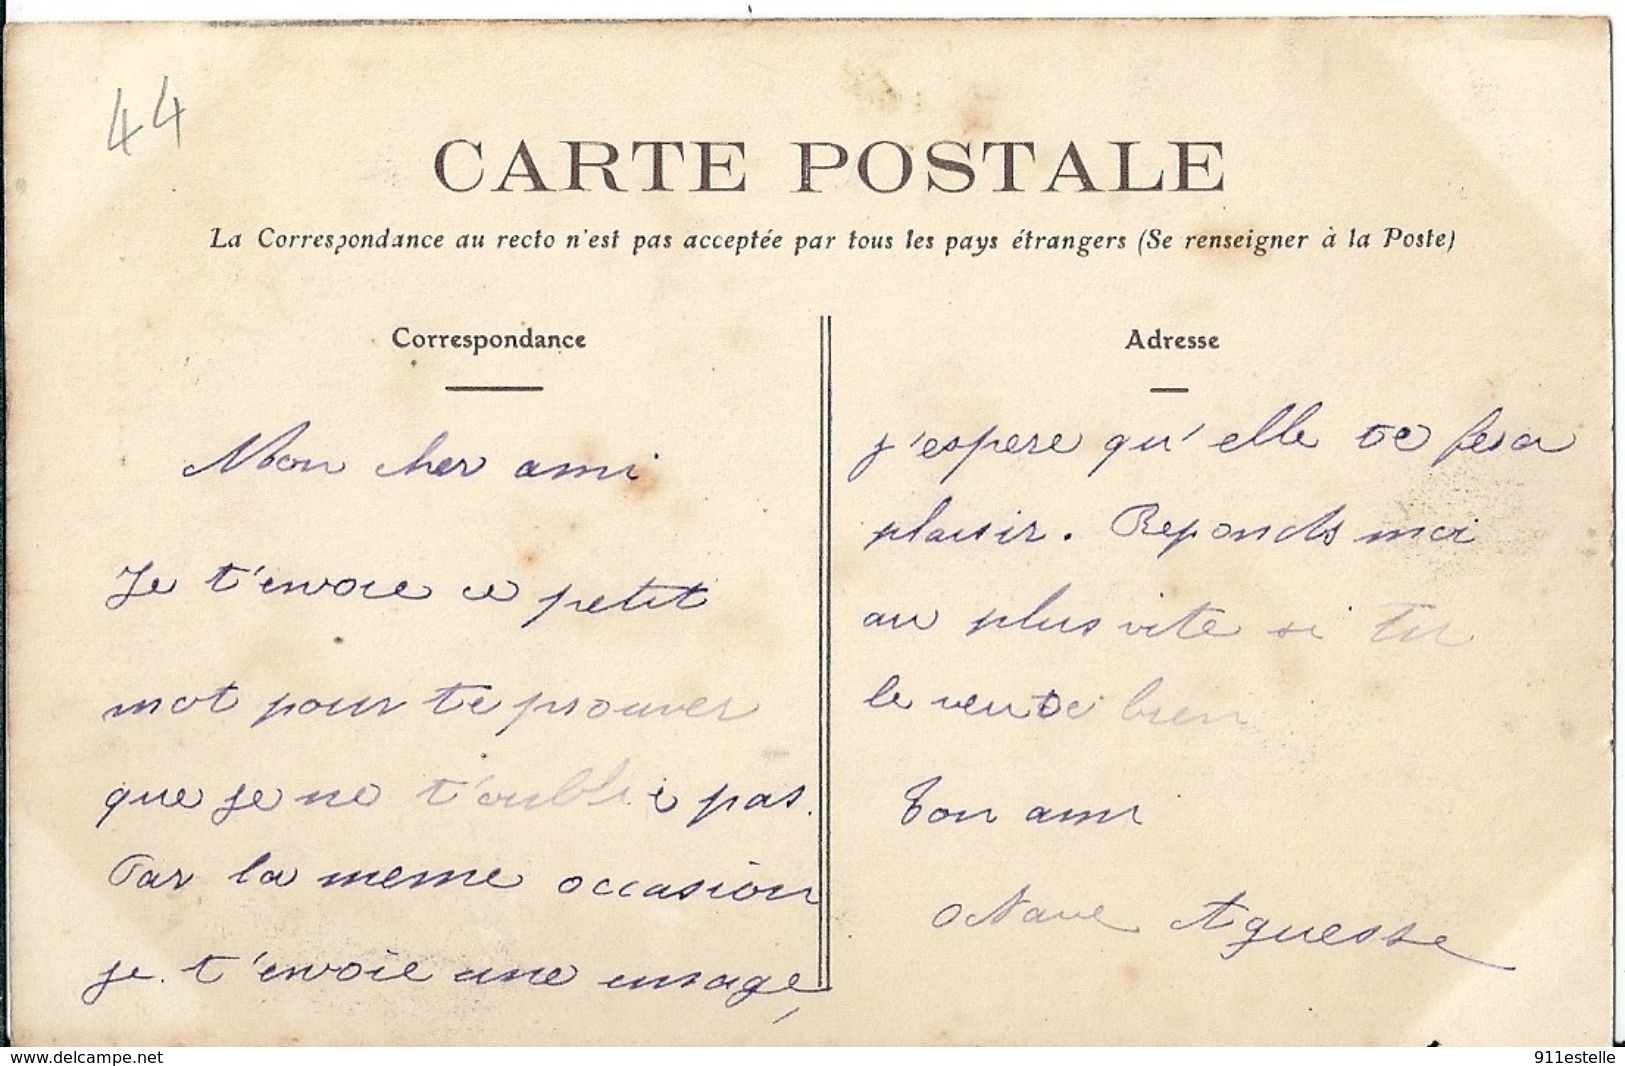 44
CARTE POSTALE
La Correspondance au recto n'est pas acceptée par tous les pays étrangers (Se renseigner à la Poste)
Correspondance
Mon cher ami
Je t'envoie ce petit
mot pour te prouver
que je ne t'oublie pas.
Par la meme occasion
je t'envoie une
Adresse
j'espere qu'elle te fera
plaisir. Reponds moi
au plus vite si tu
le veux bien
Ton ami
Octave Aguesse
www.delcampe.net
911estelle